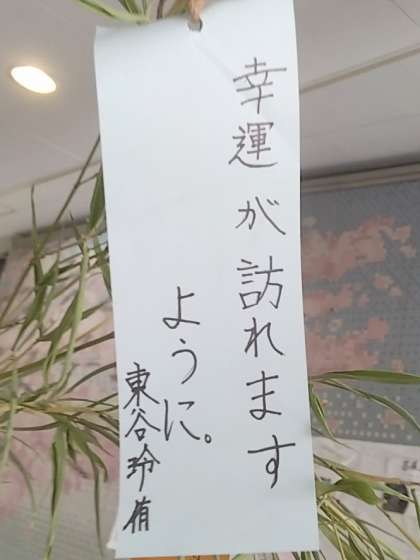 幸運が訪れます
ように。
東谷玲侑